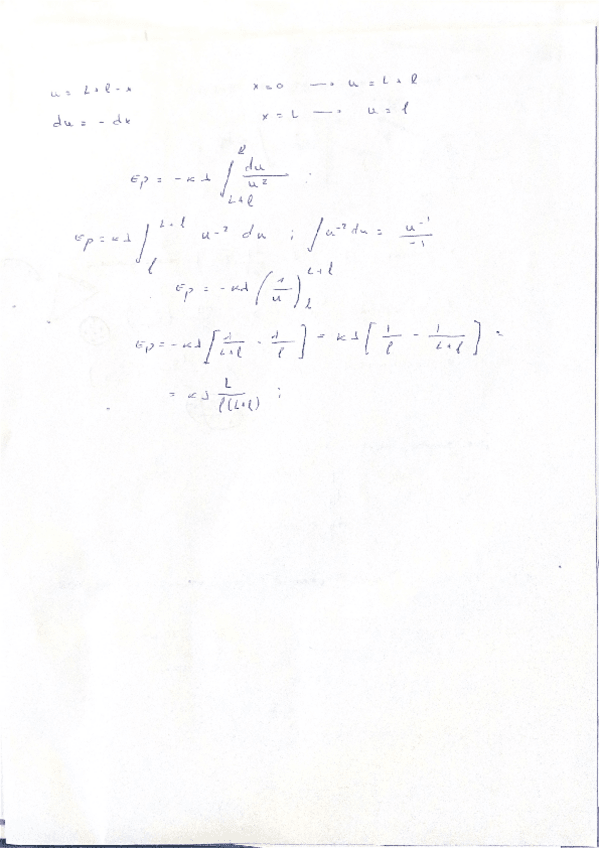 u = L+l-x x=0 → u = L+l
du = - dx x = L → u = l
Ep = -kλ ∫_{L+l}^{l} du/u² ;
Ep = kλ ∫_{l}^{L+l} u⁻² du ; ∫u⁻² du = u⁻¹/-1
Ep = -kλ (1/u)_{l}^{L+l}
Ep = -kλ [1/(L+l) - 1/l] = kλ [1/l - 1/(L+l)] =
= kλ L/(l(L+l)) ;